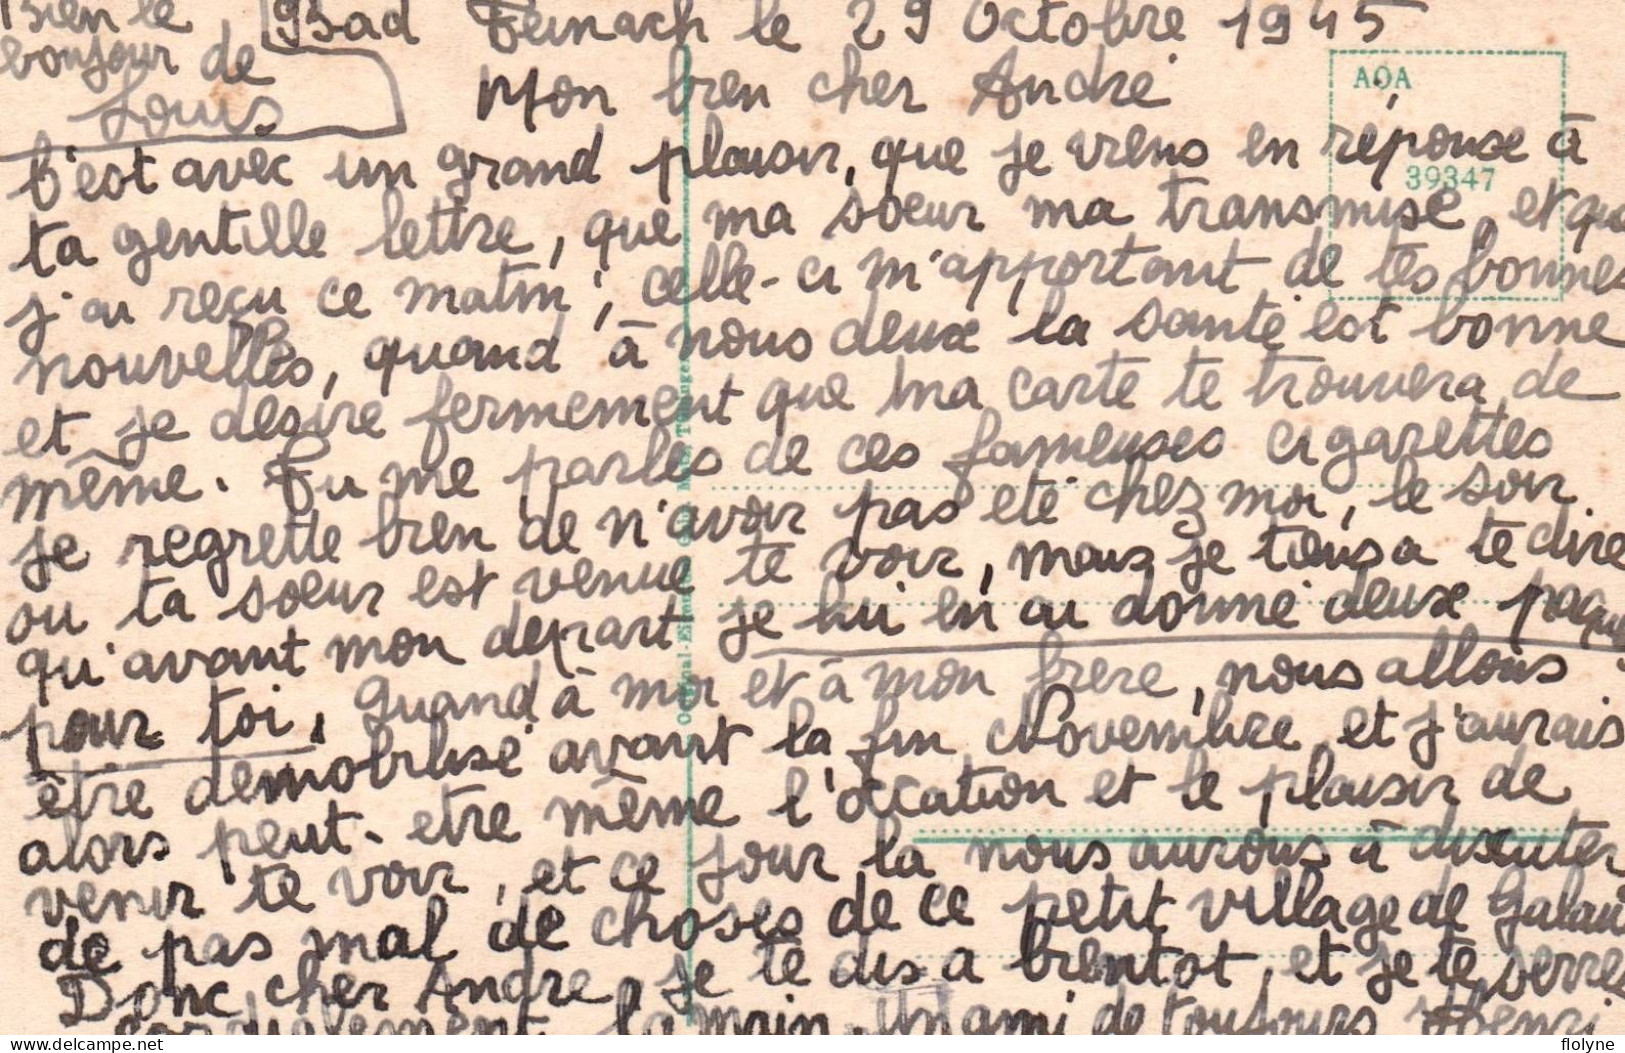 Bien le
bonjour de
Louis
Bad Teinach le 29 Octobre 1945
Mon bien cher André
AOA
39347
C'est avec un grand plaisir, que je viens en réponse à
ta gentille lettre, que ma soeur ma transmise, et que
j'ai reçu ce matin, celle-ci m'apportant de tes bonnes
nouvelles, quand à nous deux la santé est bonne
et je desire fermement que ma carte te trouvera de
même. Tu me parles de ces fameuses cigarettes
je regrette bien de n'avoir pas eté chez moi, le soir
ou ta soeur est venue te voir, mais je tiens a te dire
qu'avant mon depart je lui en ai donné deux paqu
pour toi, quand à moi et à mon frere, nous allons
être demobilisé avant la fin Novembre et j'aurais
alors peut-etre même l'occation et le plaisir de
venir te voir, et ce jour la nous aurons à discuter
de pas mal de choses de ce petit village de
Donc cher Andre, je te dis a bientot, et je te serre
cordialement la main. Un ami de toujours Henri
Original-Eigentum
delcampe.net
flolyne